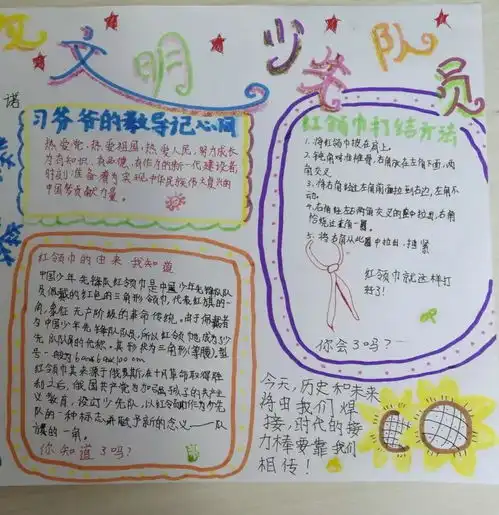 文明少先队员
诺
习爷爷的教导记心间
热爱党,热爱祖国,热爱人民,努力成长
为有知识,有品德,有作为的新一代建设者,
时刻准备着为实现中华民族伟大复兴的
中国梦贡献力量。
红领巾的由来 我知道
中国少年先锋队红领巾是中国少年先锋队队
员佩戴的红色的三角形领巾,代表红旗的一
角,象征无产阶级的革命传统。由于佩戴者
为中国少年先锋队队员,所以红领巾也成为少
先队队员的代称。其形状为三角形(等腰),型
号一般为60cm60cm100cm
红领巾其来源于俄罗斯,在十月革命取得胜
利之后,俄国共产党为加强孩子的共产主
义教育,设立少先队,以红领巾作为少先
队的一种标志并赋予新的意义——队
旗的一角。
你知道了吗?
红领巾打结方法
1. 将红领巾披在肩上。
2. 钝角对准脊椎骨,右角放在左角下面,两
角交叉
3. 将右角经过左角前面拉到右边,左角不
动。
4. 右角经左右两角交叉的
恰绕过左角一圈。
5. 将右角从此圈中拉出,抽紧
红领巾就这样打
好了!
你会了吗?
今天,历史和未来
将由我们焊
接,时代的接
力棒要靠我们
相传!